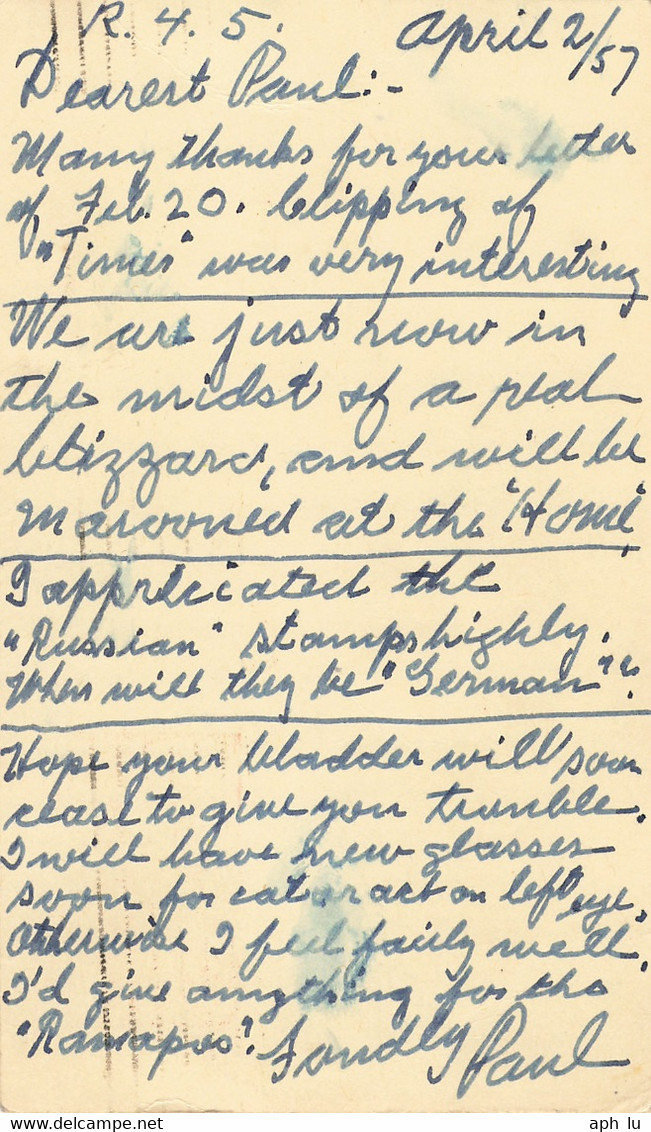 R. 4. 5. April 2/57
Dearest Paul:-
Many thanks for your letter
of Feb. 20. Clipping of
"Times" was very interesting
We are just now in
the midst of a real
blizzard, and will be
marooned at the "Home"
I appreciated the
"Russian" stamps highly.
When will they be "German"?
Hope your bladder will soon
cease to give you trouble.
I will have new glasses
soon for cataract on left eye.
Otherwise I feel fairly well.
I'd give anything for the
"Ramapos". Fondly Paul
aph lu